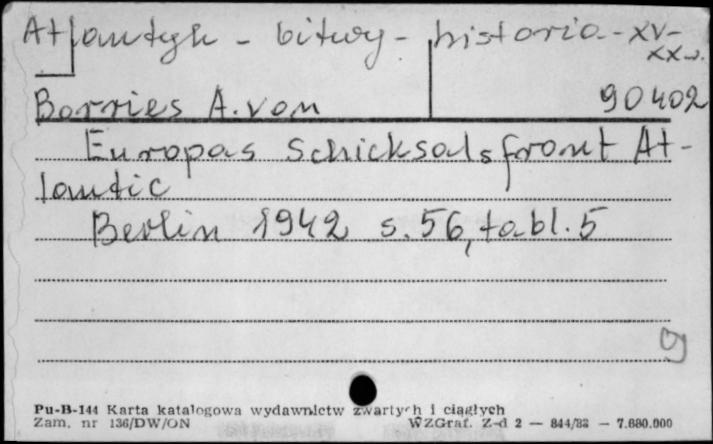 Atlantyk - bitwy - historia - XV-
XX w.
Borries A. von 90402
Europas Schicksalsfront At-
lantic
Berlin 1942 s. 56, tabl. 5
Pu-B-144 Karta katalogowa wydawnictw zwartych i ciągłych
Zam. nr 136/DW/ON WZGraf. Z-d 2 — 844/88 — 7.680.000